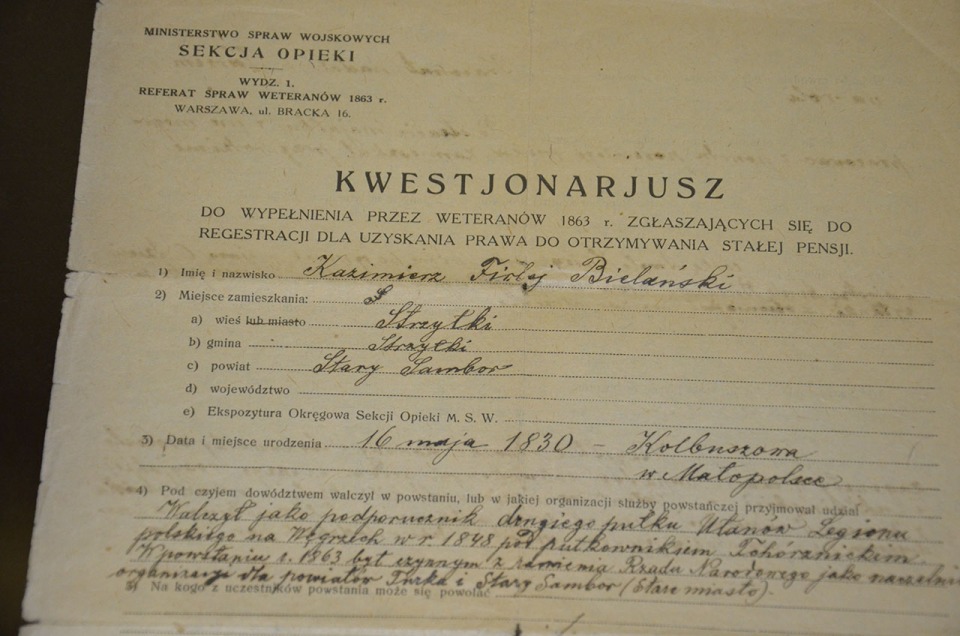 MINISTERSTWO SPRAW WOJSKOWYCH
SEKCJA OPIEKI
WYDZ. 1.
REFERAT SPRAW WETERANÓW 1863 r.
WARSZAWA, ul. BRACKA 16.
KWESTJONARJUSZ
DO WYPEŁNIENIA PRZEZ WETERANÓW 1863 r. ZGŁASZAJĄCYCH SIĘ DO
REGESTRACJI DLA UZYSKANIA PRAWA DO OTRZYMYWANIA STAŁEJ PENSJI.
1) Imię i nazwisko Kazimierz Firlej Bielański
2) Miejsce zamieszkania: S
a) wieś lub miasto Strzyłki
b) gmina Strzyłki
c) powiat Stary Sambor
d) województwo
e) Ekspozytura Okręgowa Sekcji Opieki M. S. W.
3) Data i miejsce urodzenia 16 maja 1830 – Kolbuszowa
w Małopolsce
4) Pod czyjem dowództwem walczył w powstaniu, lub w jakiej organizacji służby powstańczej przyjmował udział
Walczył jako podporucznik drugiego pułku Ułanów Legionu
polskiego na Węgrzech w r. 1848 pod pułkownikiem Tchórznickim.
W powstaniu r. 1863 był czynnym z ramienia Rządu Narodowego jako naczelnik
organizacji dla powiatów Turka i Stary Sambor (Stare miasto).
5) Na kogo z uczestników powstania może się powołać